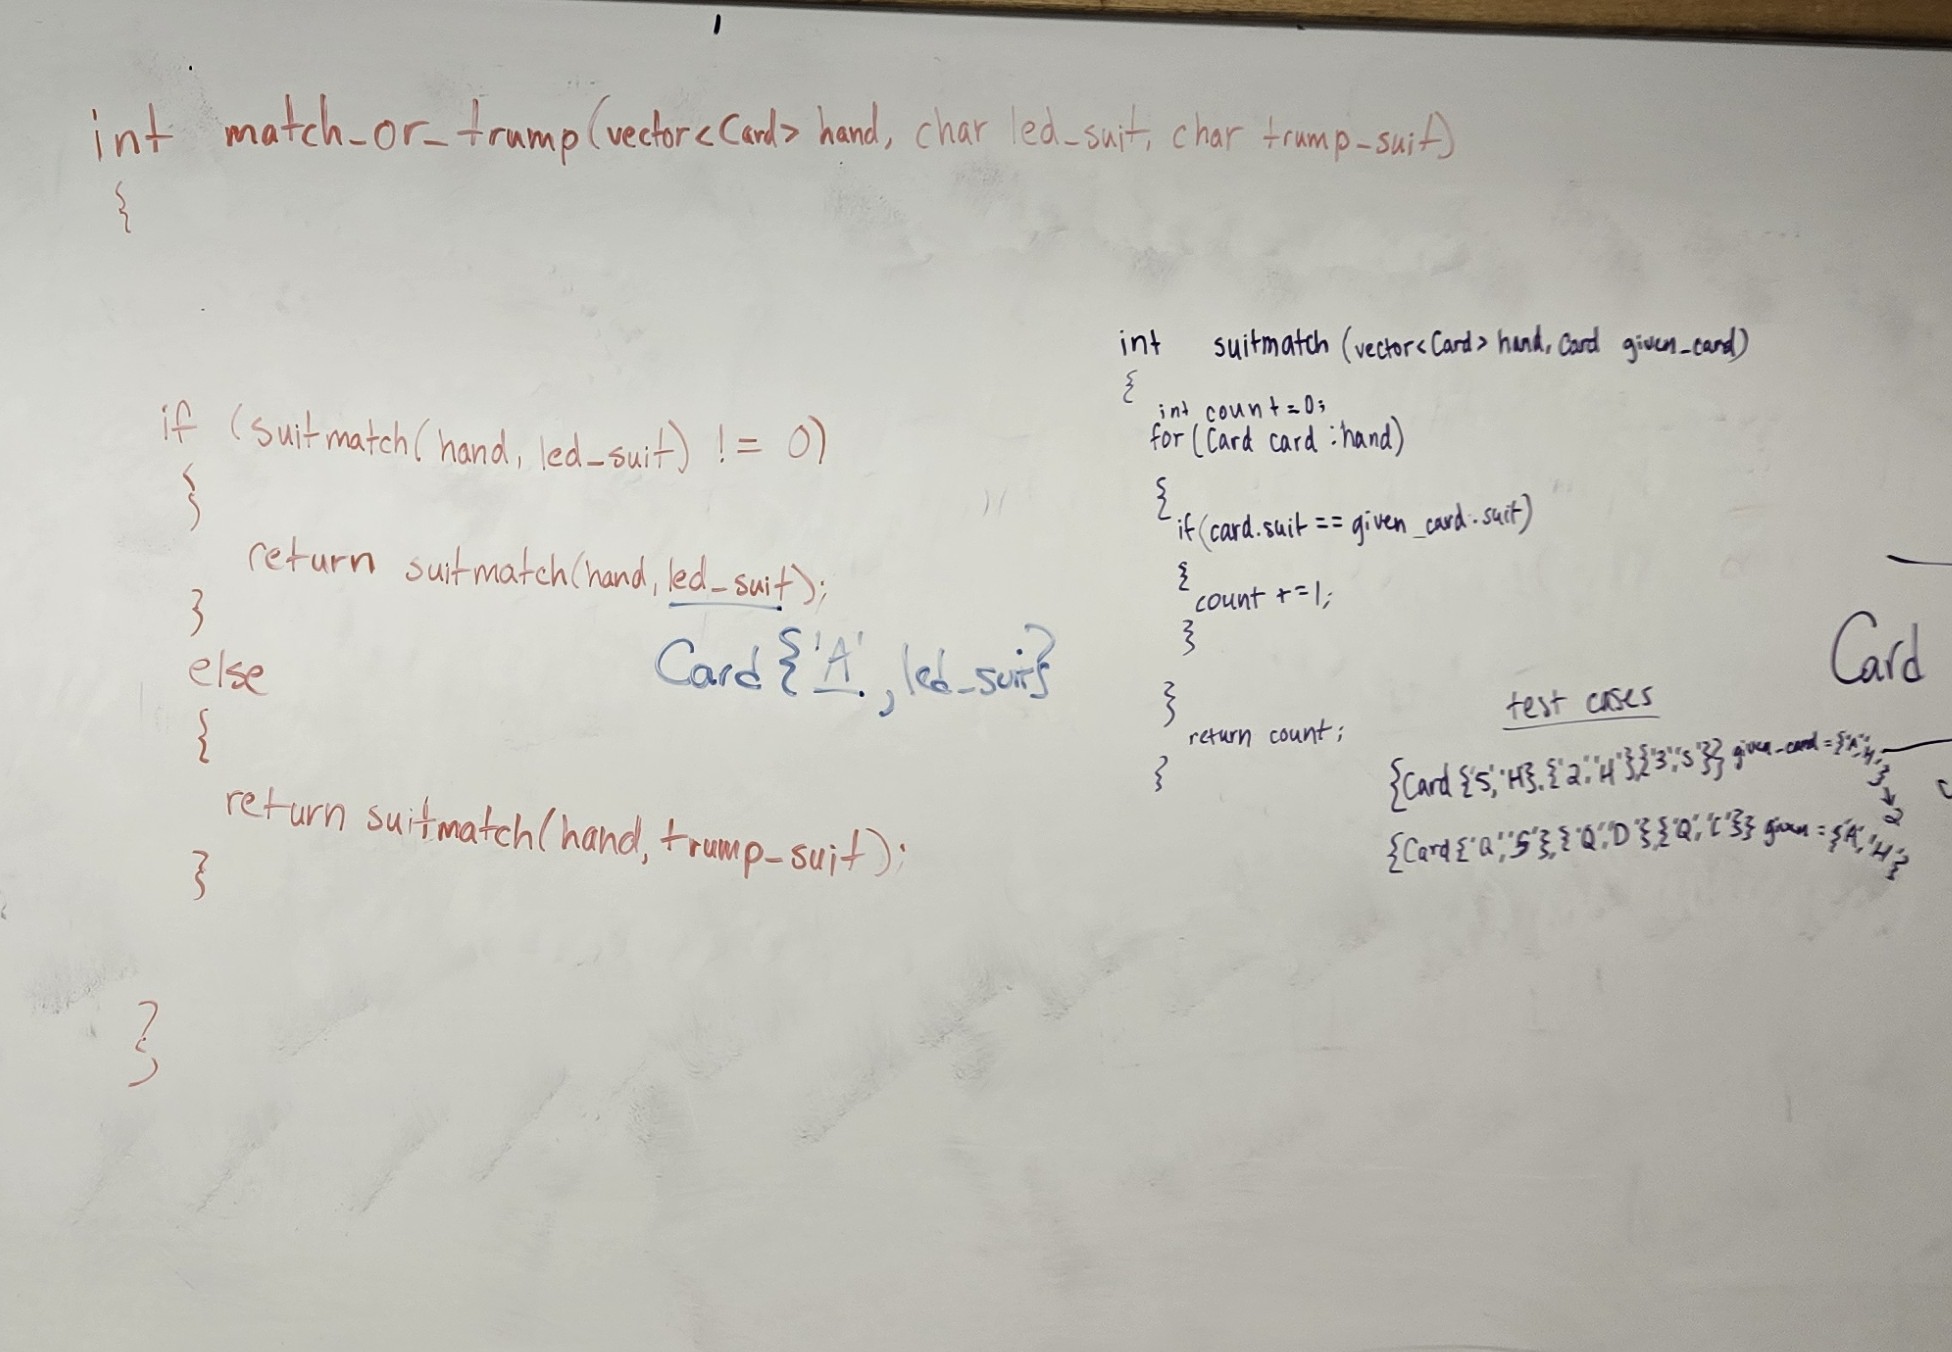 int match_or_trump(vector<Card> hand, char led_suit, char trump_suit)
{
if (suitmatch(hand, led_suit) != 0)
{
return suitmatch(hand, led_suit);
}
else
{
return suitmatch(hand, trump_suit);
}
}
Card {'A', led_suit}
int suitmatch (vector<Card> hand, Card given_card)
{
int count = 0;
for (Card card : hand)
{
if (card.suit == given_card.suit)
{
count +=1;
}
}
return count;
}
test cases
{Card {'5', 'H}, {'2', 'H'}, {'3', 'S'}} given_card = {'A', 'H'
} → 2
{Card {'Q', 'S'}, {'Q', 'D'}, {'Q', 'C'}} given = {'A', 'H'}
Card